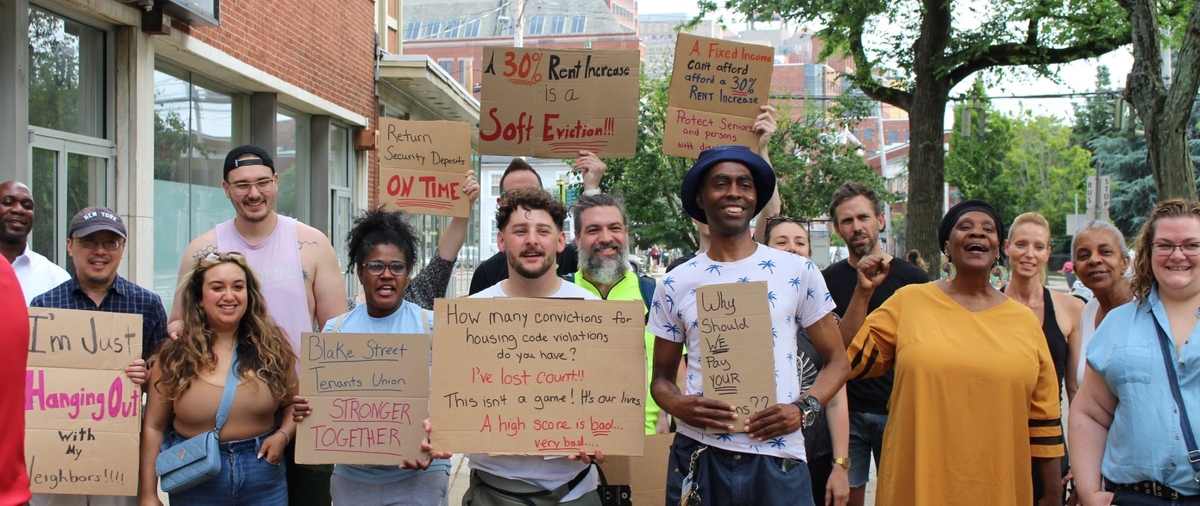 Return
Security Deposits
ON TIME
A 30% Rent Increase
is a
Soft Eviction!!!
A Fixed Income
can't afford
afford a 30%
Rent Increase
Protect Seniors
and persons
with
NEW YORK
I'm Just
Hanging Out
with
My
Neighbors!!!!
Blake Street
Tenants Union
STRONGER
TOGETHER
How many convictions for
housing code violations
do you have?
I've lost count!!
This isn't a game! It's our lives
A high score is bad...
very bad....
Why
Should
WE
Pay
YOUR
??